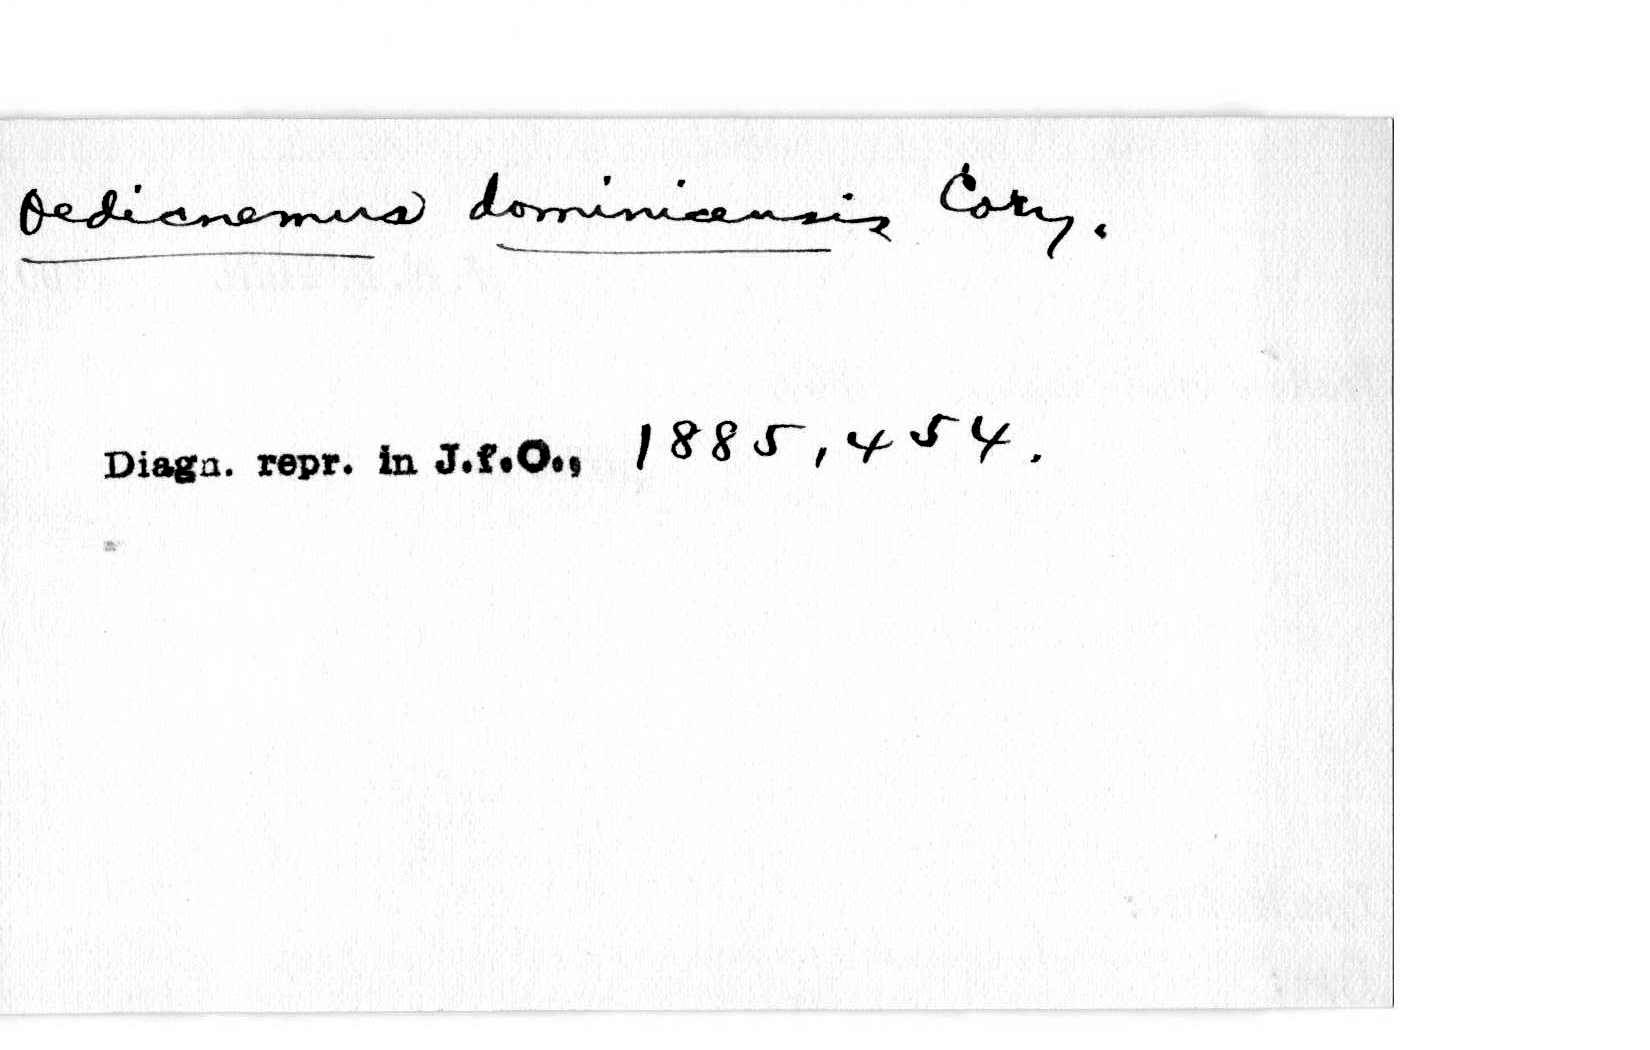 Oedicnemus dominicensis Cory.
Diagn. repr. in J.f.O., 1885, 454.